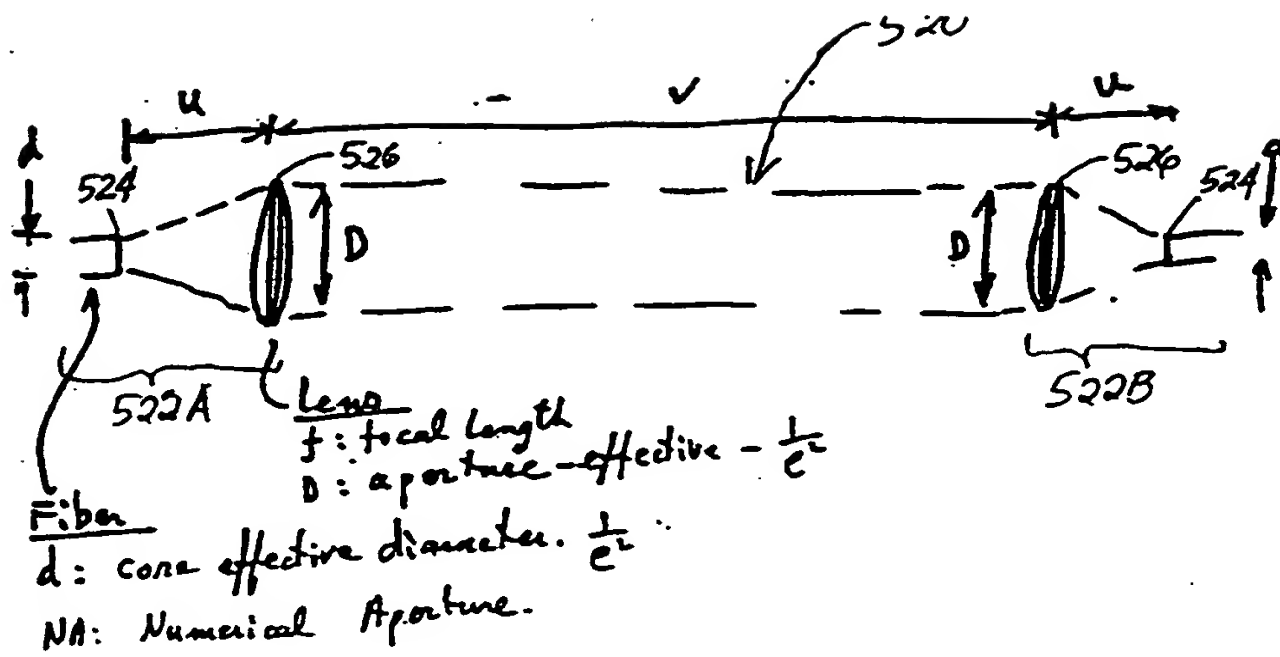 520
u - v u
d 526 526
524 D D 524 d
522A 522B
Lens
f: focal length
D: aperture - effective - 1/e²
Fiber
d: core effective diameter. 1/e²
NA: Numerical Aperture.